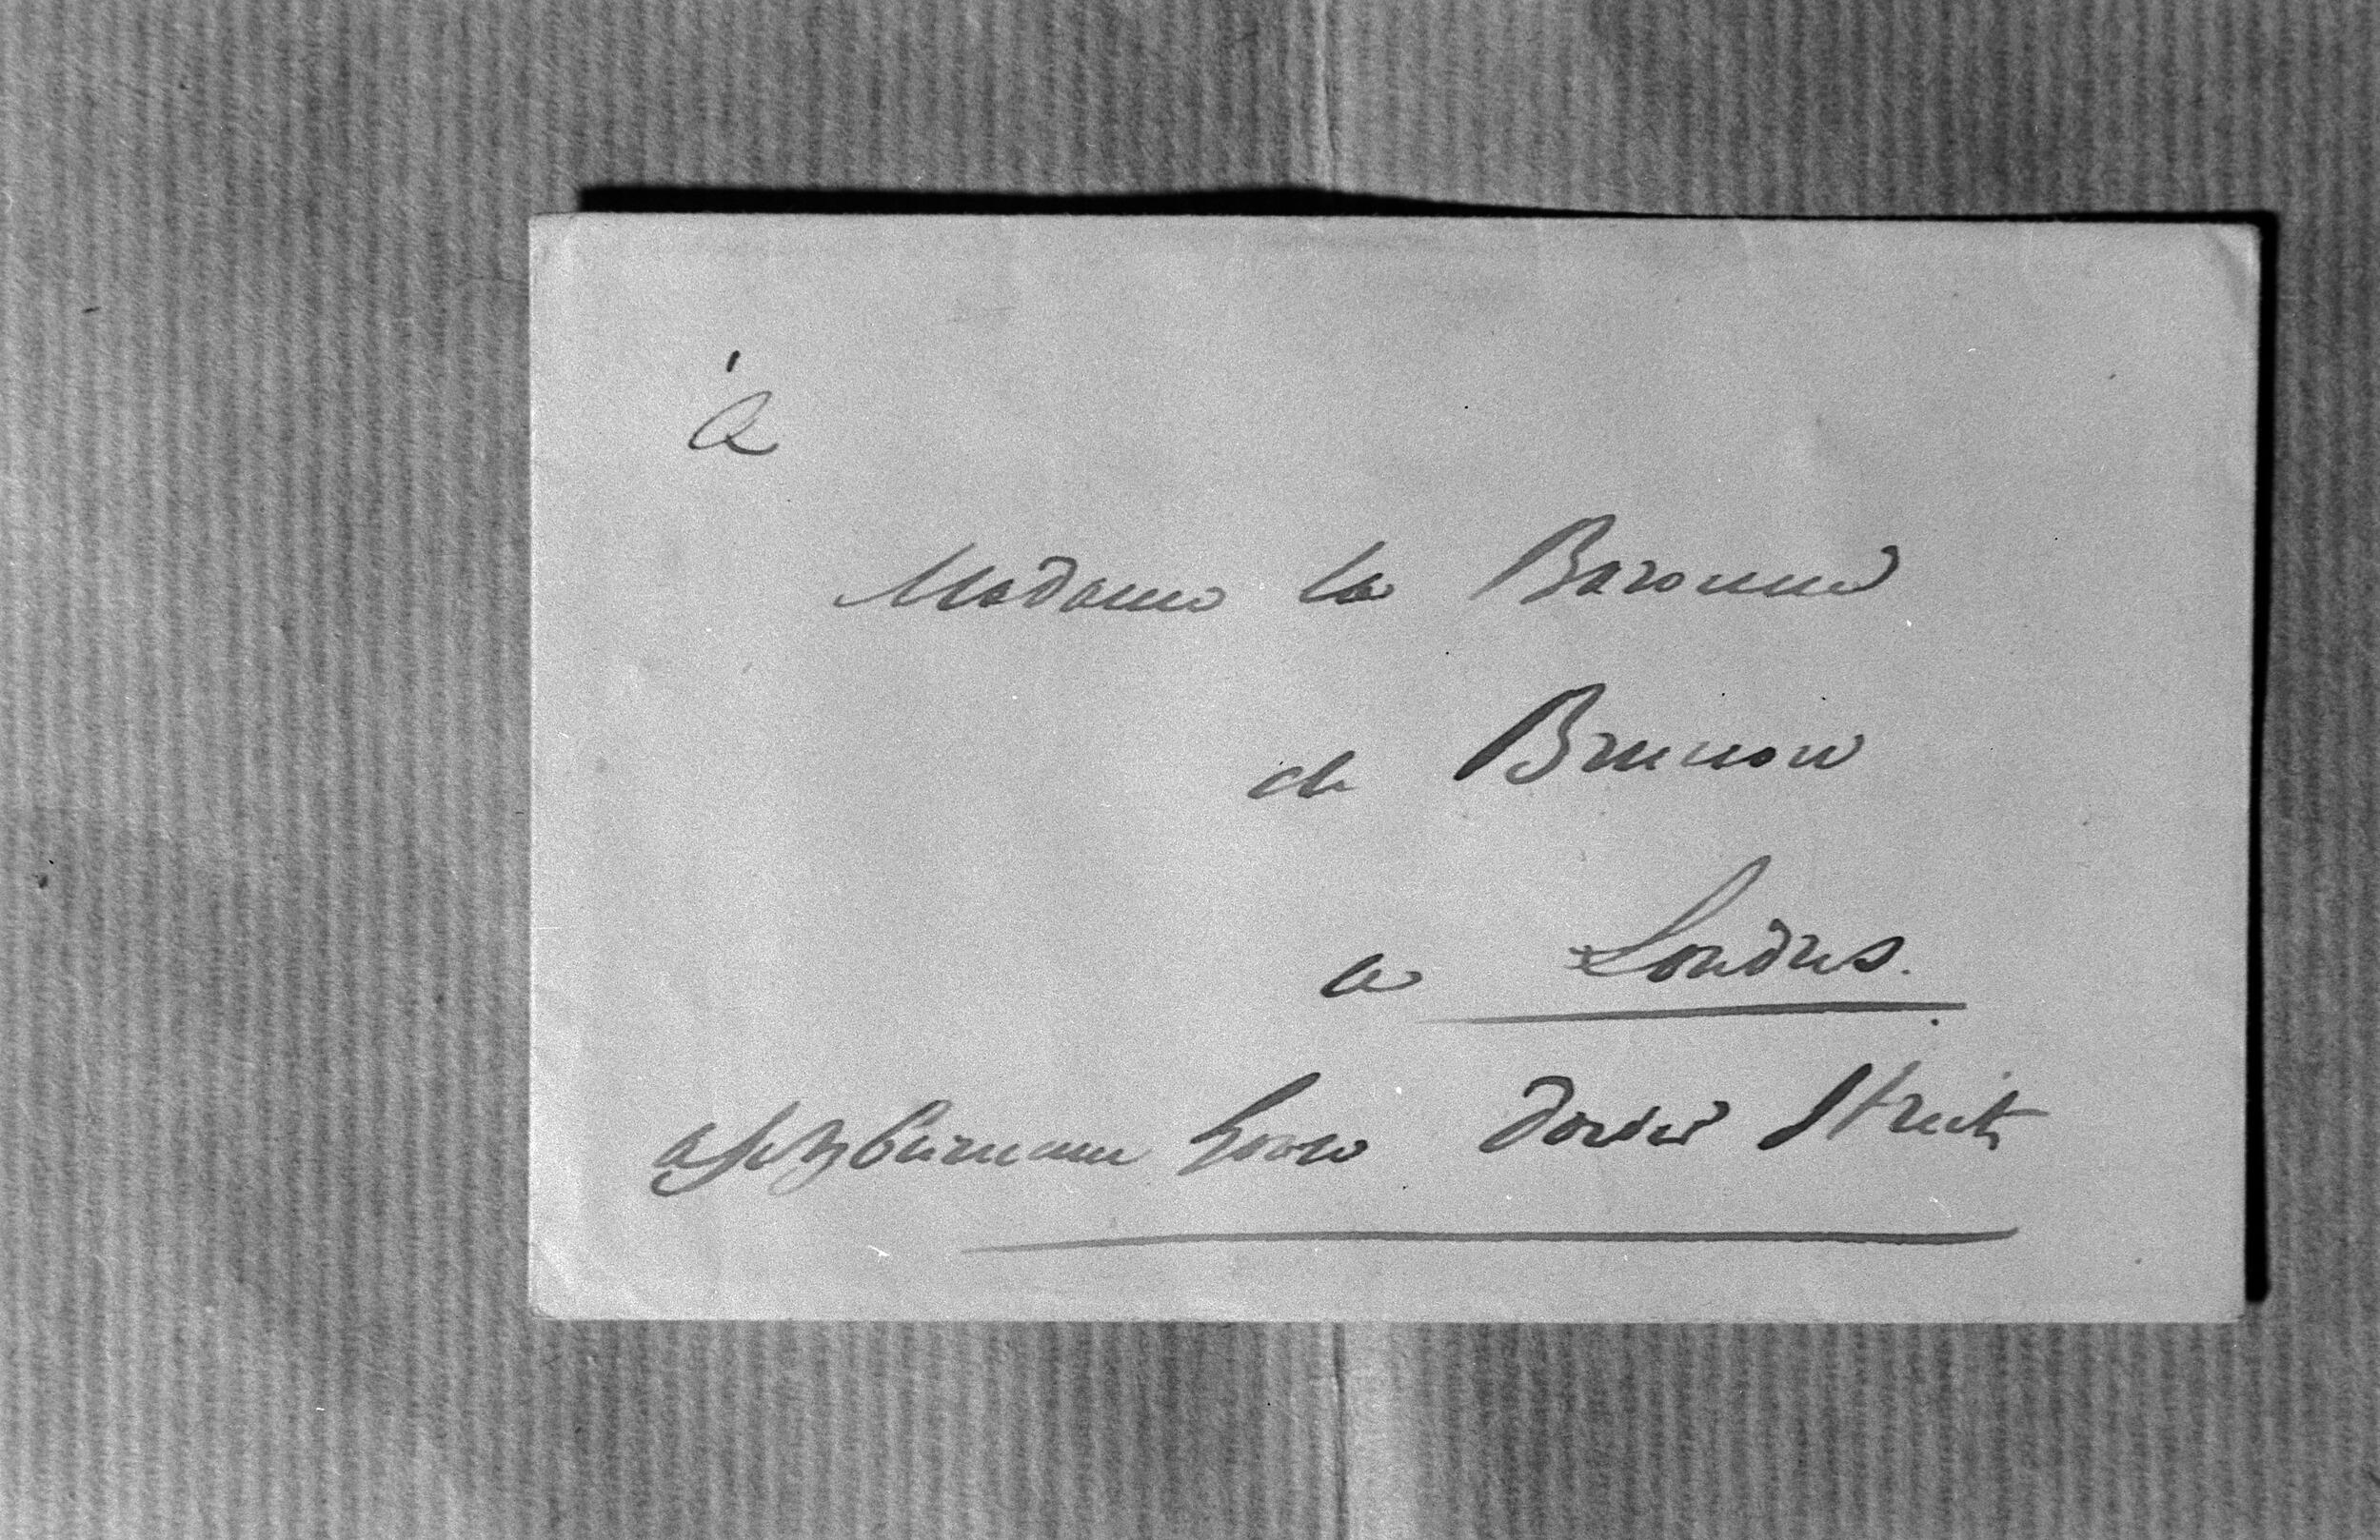 à
Madame la Baronne
de Brunow
a Londres.
House Dover Street